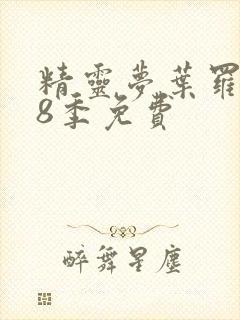 精靈夢葉羅
8季免費
醉舞星塵